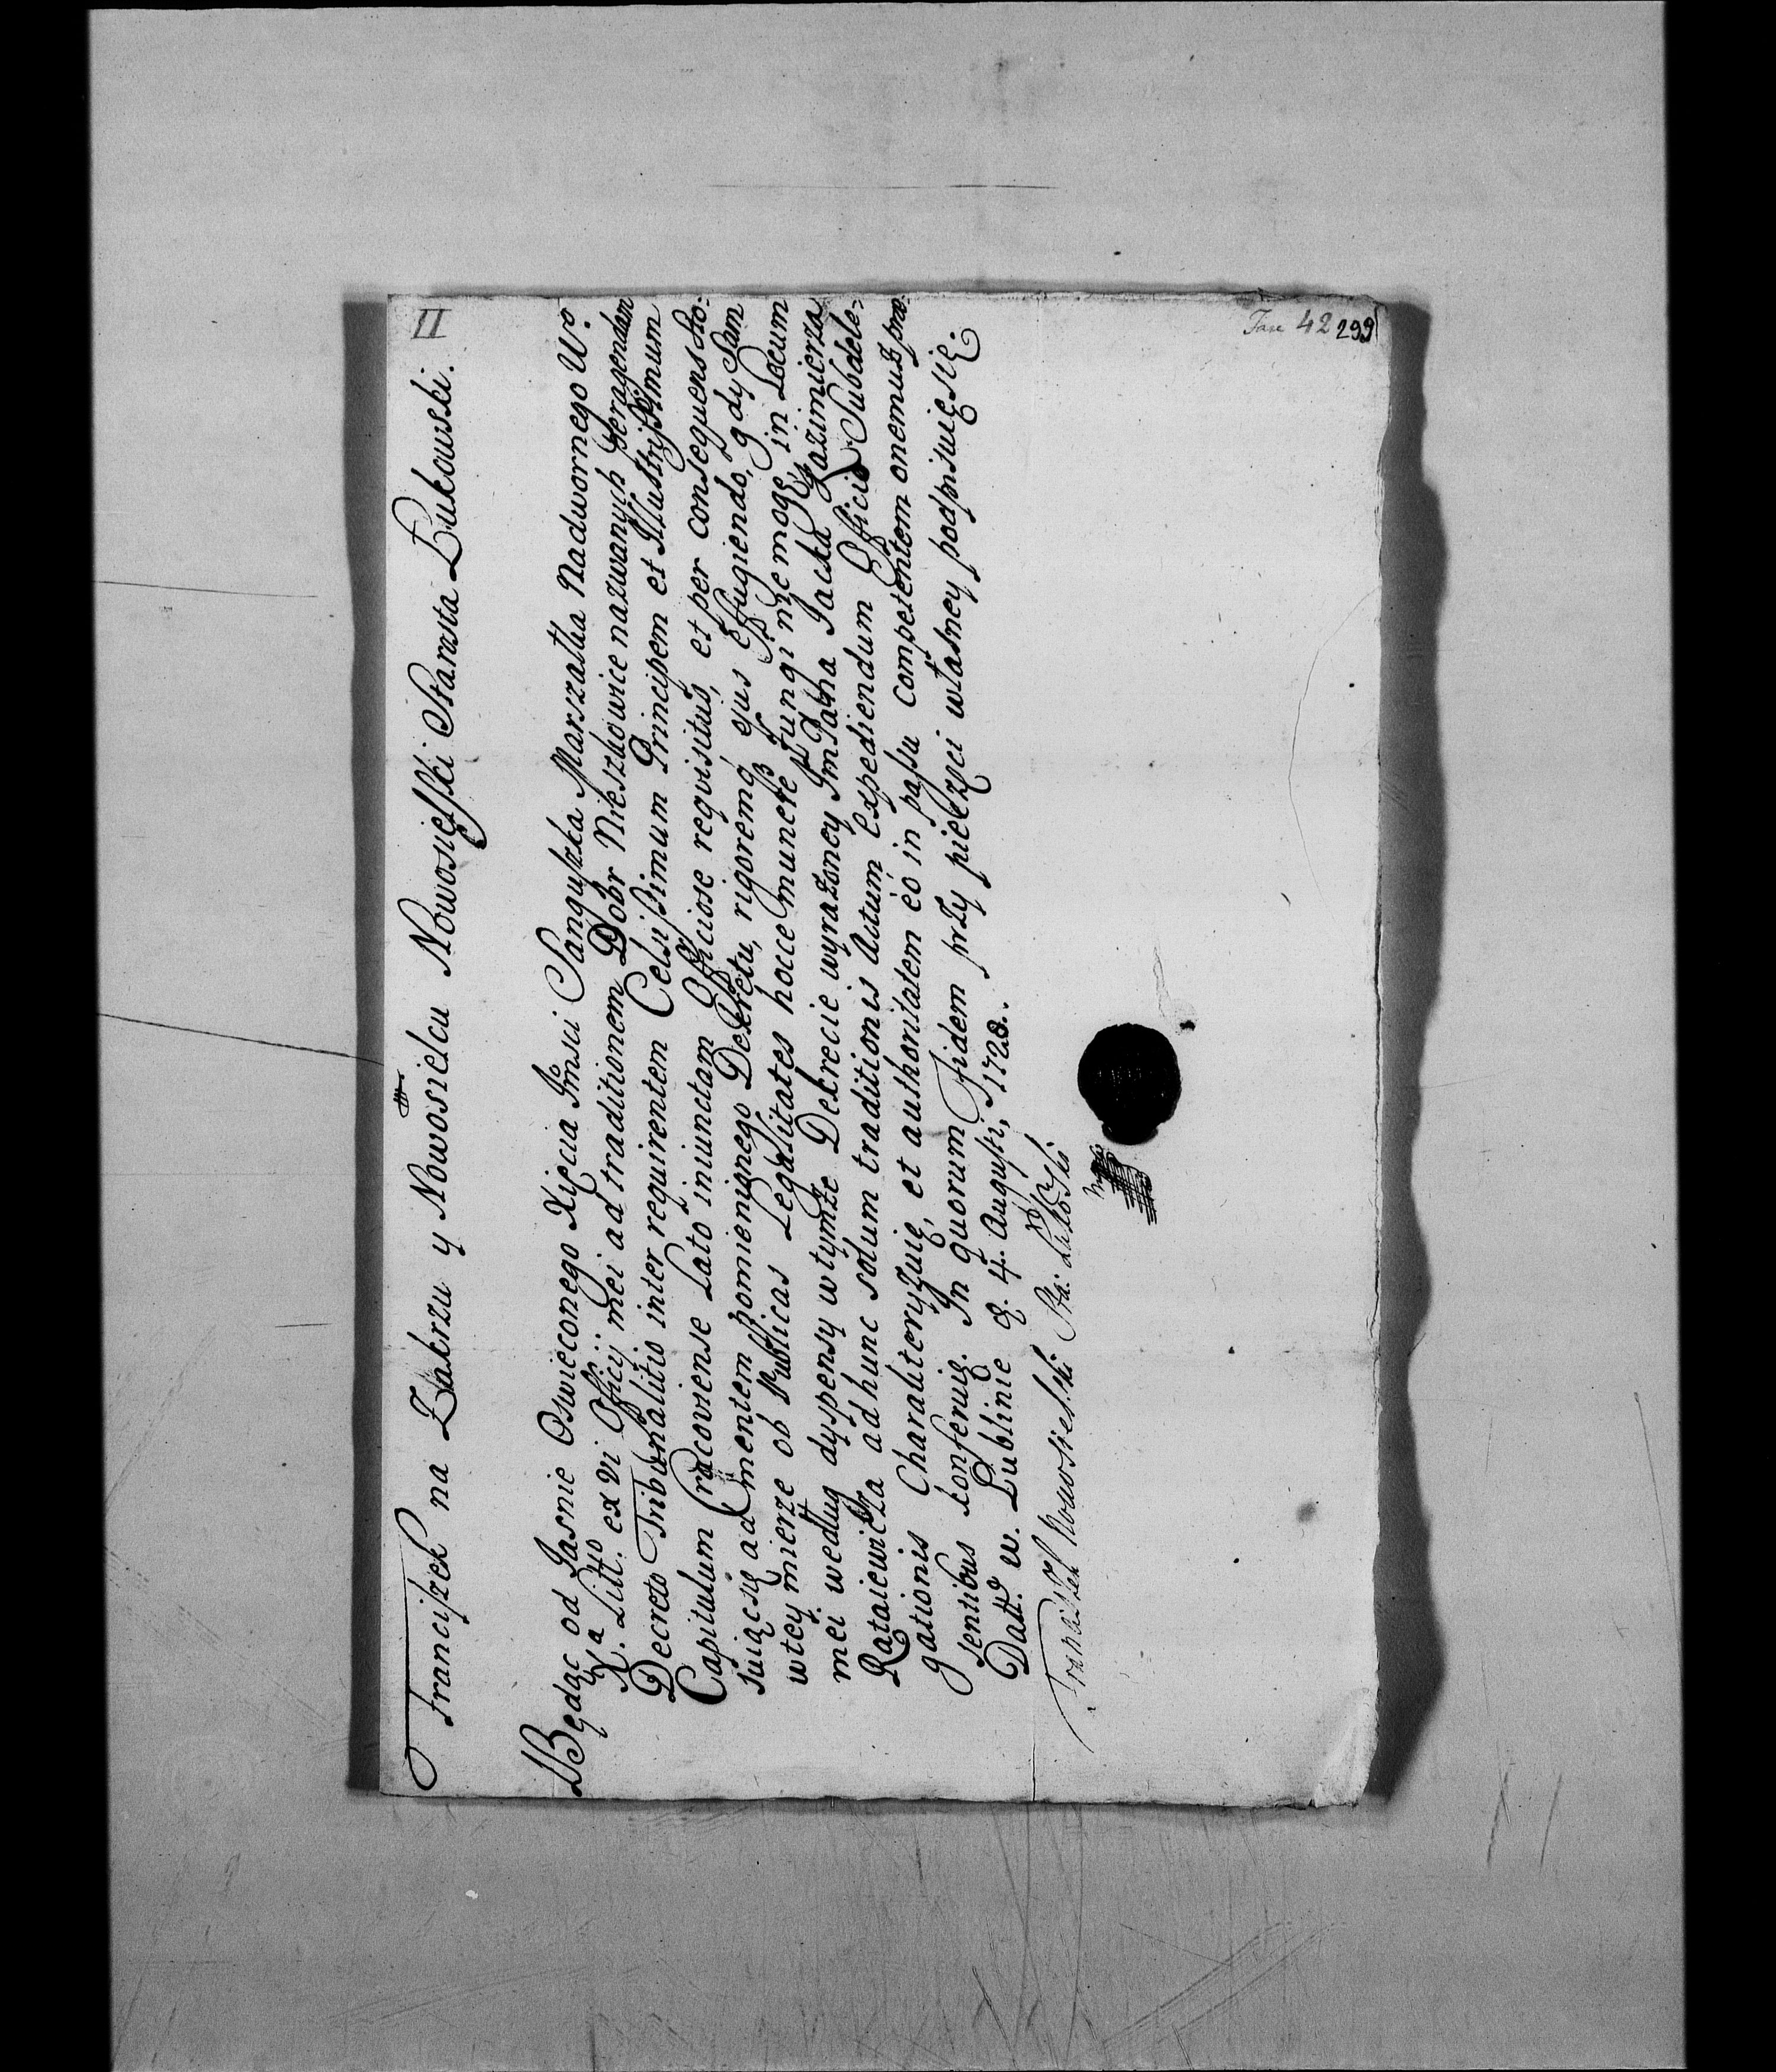 II
Franciszek na Zakrzu y Nowosielcu Nowosielski Starosta Łukowski.
Będąc od Jasnie Oswieconego Xięcia Jmsci Sanguszka Marszałka Nadwornego W°
X. Litt° ex vi Officij mei ad traditionem Dobr Nieszkowice nazwanych peragendam
Decreto Tribunalitio inter requirentem Celsissimum Principem et Illustrissimum
Capitulum Cracoviense Lato iniunctam Officiose requisitus, et per consequens sto-
suiąc się ad mentem pomienionego Dekretu, rigoremq ejus Effugiendo, gdy Sam
wtey mierze ob Publicas Legalitates hocce munere fungi nie mogę, in Locum
mei według dyspensy wtymze Dekrecie wyrazoney Jm Pana Jacka Kazimierza
Rataiewicza ad hunc solum traditionis Actum expediendum Officio Subdele=
gationis Charakteryzuię, et authoritatem eo in passu competentem onemuz præ-
sentibus konferuię. In quorum Fidem przy pieczęci własney podpisuięsię.
Datt w. Lublinie d. 4. Augusti, 1728.
Franciszek Nowosielski Sta: Łukowski
Fasc 42
299